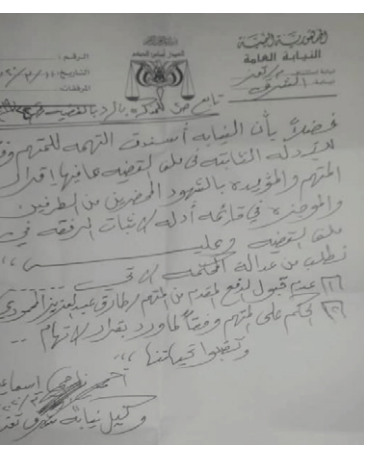 الجمهورية اليمنية
النيابة العامة
نيابة
نيابة شرق
الرقم:
التاريخ:
المرفقات:
تابع
فضلاً بأن النيابة أسندت التهمة للمتهم وفق
للأدلة الثابتة في ملف القضية بما فيها إقرار
المتهم والمؤيدة بالشهود المحضرين من الطرفين
والموضحة في قائمة أدلة الإثبات المرفقة في
ملف القضية وعليه
نطلب من عدالة المحكمة الآتي
(1) عدم قبول الدفع المقدم من المتهم طارق عبدالعزيز
(2) الحكم على المتهم وفقاً لما ورد بقرار الاتهام
وتقبلوا تحياتنا
أحمد
وكيل نيابة شرق تعز